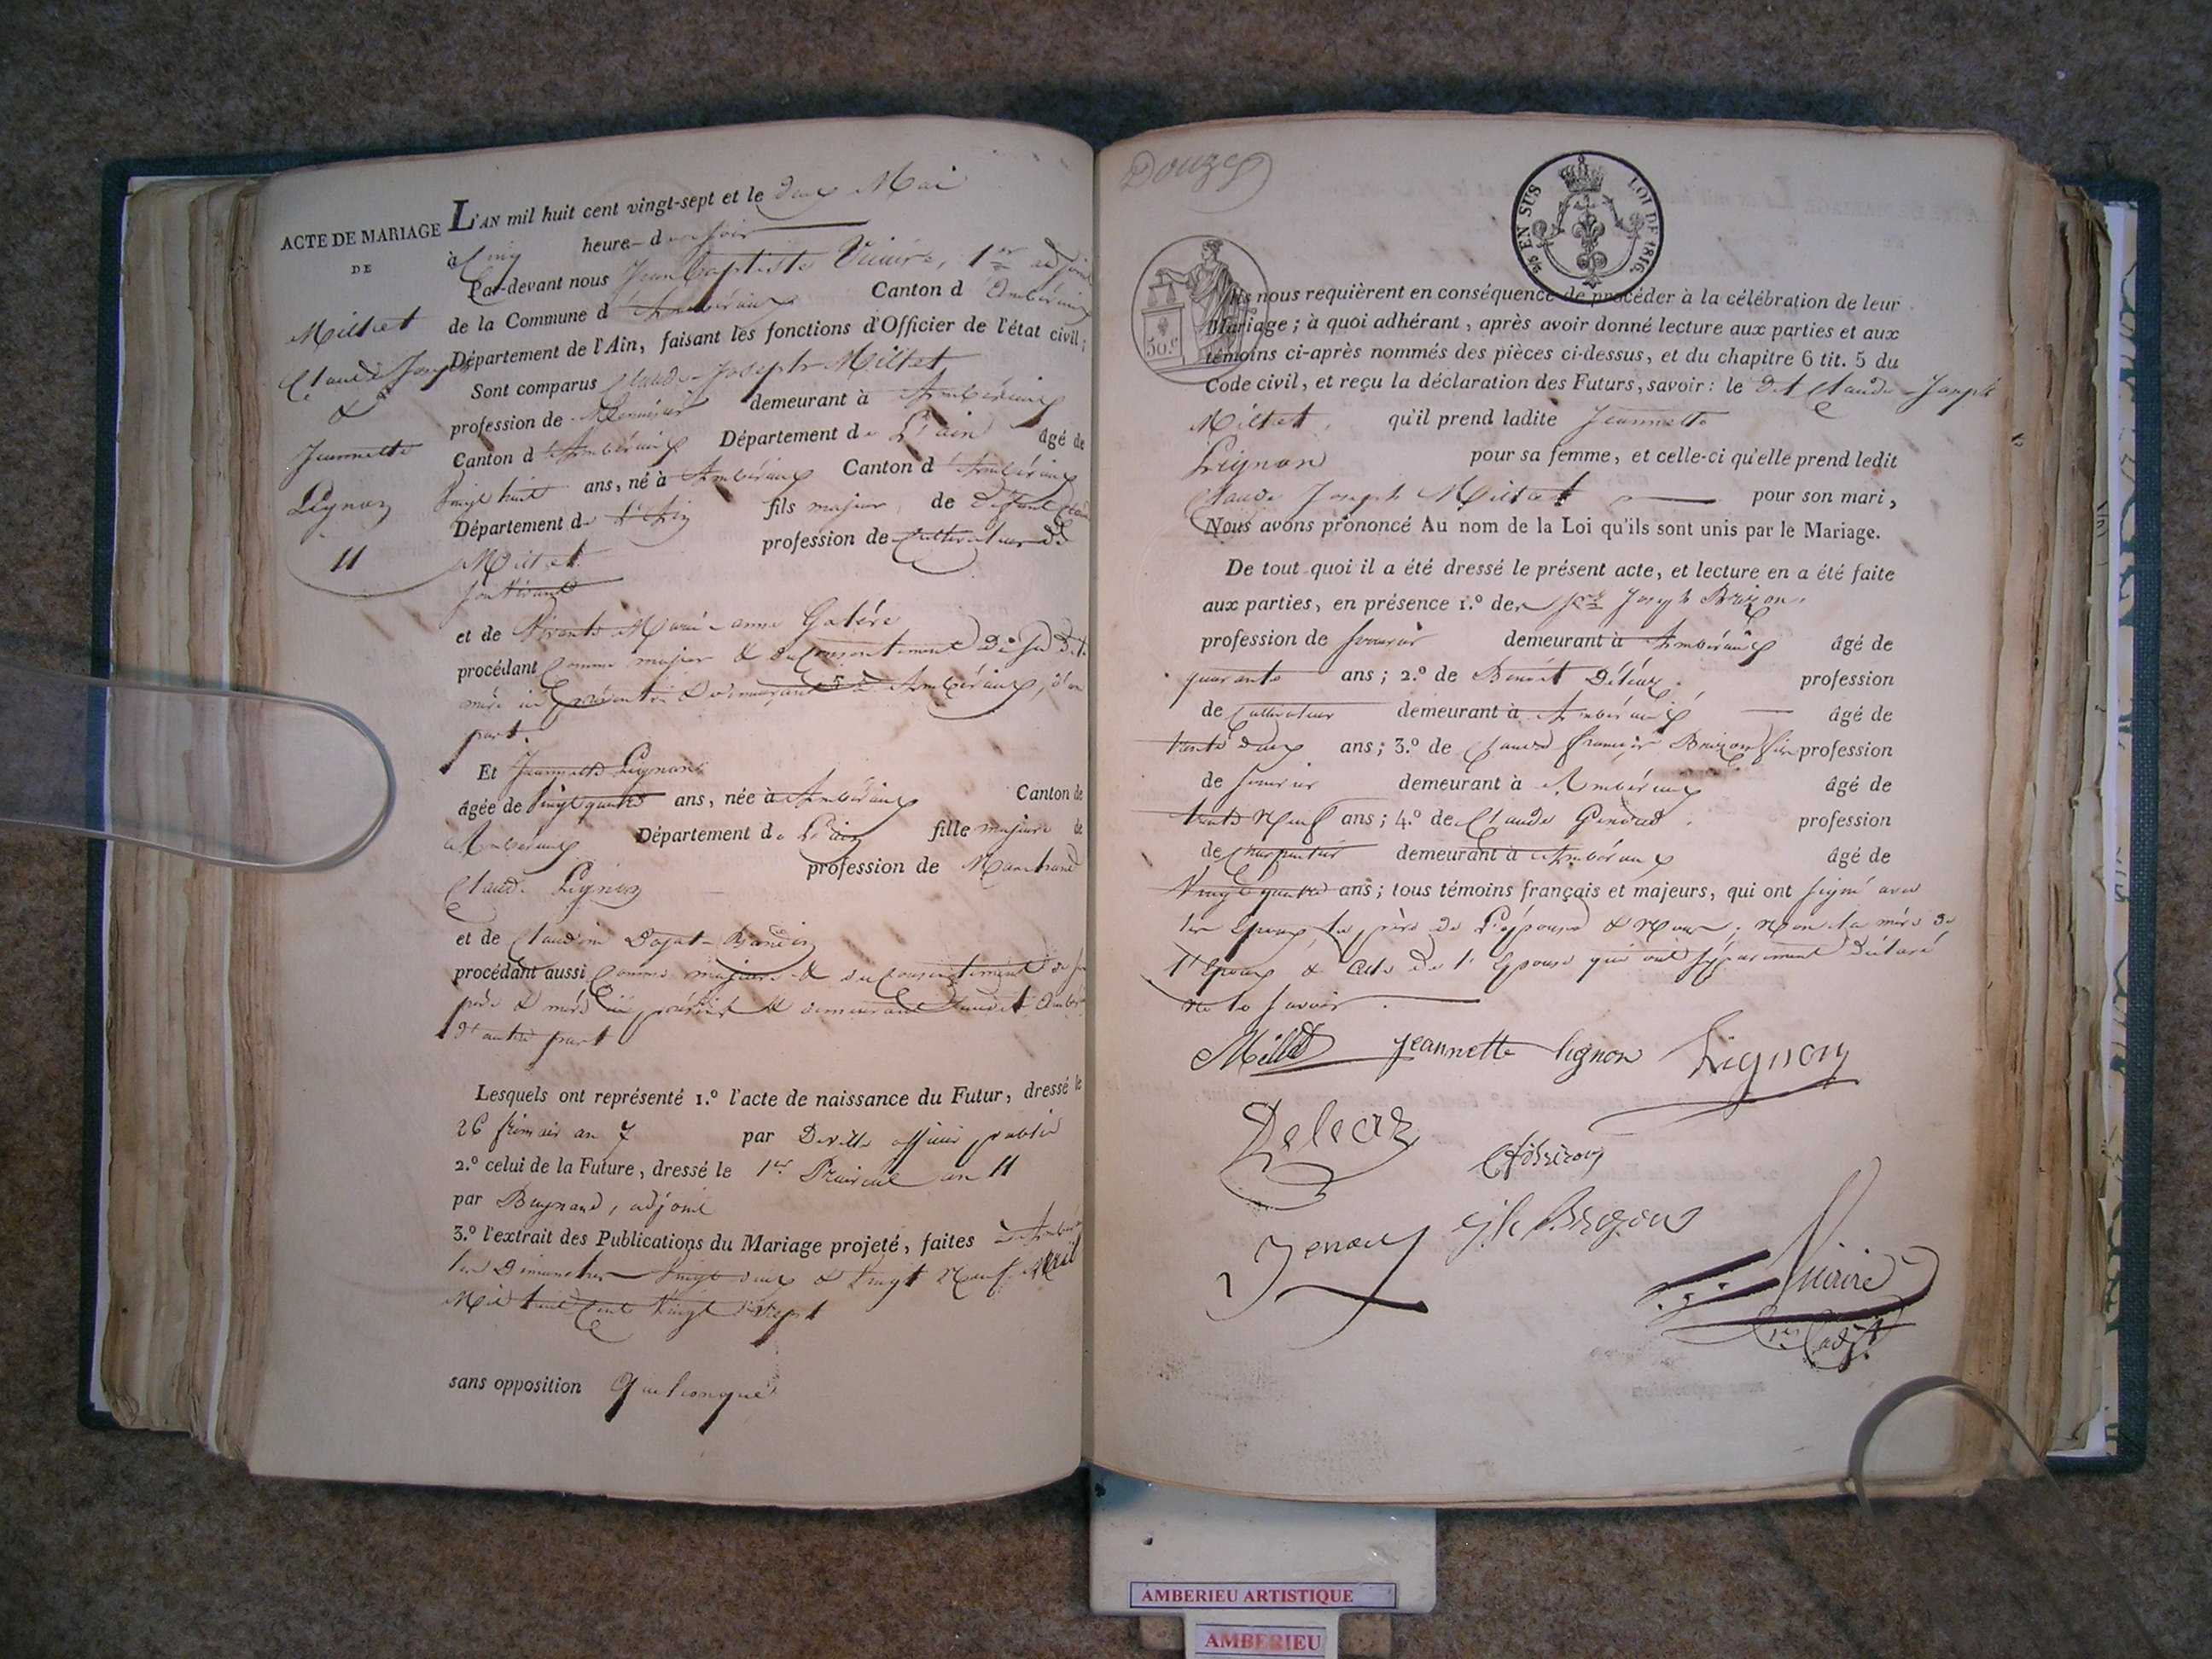 ACTE DE MARIAGE
DE
Miltet
Claude Joseph
&
Jeannette
Lignon
11
L'AN mil huit cent vingt-sept et le deux Mai
à cinq heure d soir
Par-devant nous Jean Baptiste Vicaire, 1er adjoint
de la Commune d'Ambérieux Canton d'Ambérieux
Département de l'Ain, faisant les fonctions d'Officier de l'état civil;
Sont comparus Claude-Joseph Miltet
profession de demeurant à Ambérieux
Canton d'Ambérieux Département de L'ain âgé de
Vingt huit ans, né à Ambérieux Canton d'Ambérieux
Département de L'Ain fils majeur, de Défunt Claude
Miltet profession de Cultivateur
et de Vivante Marie-anne Galére
procédant Comme majeur & du Consentement de sa dite
mère ici présente & demeurant à Ambérieux, d'une
part.
Et Jeannette Lignon
âgée de Vingt quatre ans, née à Ambérieux Canton de
Ambérieux Département de L'ain fille majeure de
Claude Lignon profession de Marchand
et de Claudine
procédant aussi Comme majeure & du Consentement de ses
père & mère ici présents & demeurant audit Ambérieux
d'autre part
Lesquels ont représenté 1.º l'acte de naissance du Futur, dressé le
26 frimair an 7 par officier public
2.º celui de la Future, dressé le 1er Prairial an 11
par Buynand, adjoint
3.º l'extrait des Publications du Mariage projeté, faites à Ambérieux
les Dimanches Vingt deux & Vingt Neuf Avril
Mil huit Cent Vingt Sept
sans opposition Quelconque
Douze
5/10 EN SUS LOI DE 1816.
50.c
Ils nous requièrent en conséquence de procéder à la célébration de leur
Mariage; à quoi adhérant, après avoir donné lecture aux parties et aux
témoins ci-après nommés des pièces ci-dessus, et du chapitre 6 tit. 5 du
Code civil, et reçu la déclaration des Futurs, savoir: le dit Claude-Joseph
Miltet, qu'il prend ladite Jeannette
Lignon pour sa femme, et celle-ci qu'elle prend ledit
Claude Joseph Miltet pour son mari,
Nous avons prononcé Au nom de la Loi qu'ils sont unis par le Mariage.
De tout quoi il a été dressé le présent acte, et lecture en a été faite
aux parties, en présence 1.º de Joseph Brizon,
profession de demeurant à Ambérieux âgé de
quarante ans; 2.º de Benoît Déléaz profession
de Cultivateur demeurant à Ambérieux âgé de
trente deux ans; 3.º de Claude françois Brizon profession
de demeurant à Ambérieux âgé de
trente Neuf ans; 4.º de Claude profession
de Charpentier demeurant à Ambérieux âgé de
Vingt quatre ans; tous témoins français et majeurs, qui ont signé avec
les Epoux, le père de L'épouse & Nous, Non la mère de
l'Epoux & Celle de l'Epouse qui ont séparément déclaré
ne le savoir.
Miltet jeannette lignon Lignon
Deleaz
Brizon
Vicaire
1er adjt
AMBERIEU ARTISTIQUE
AMBERIEU